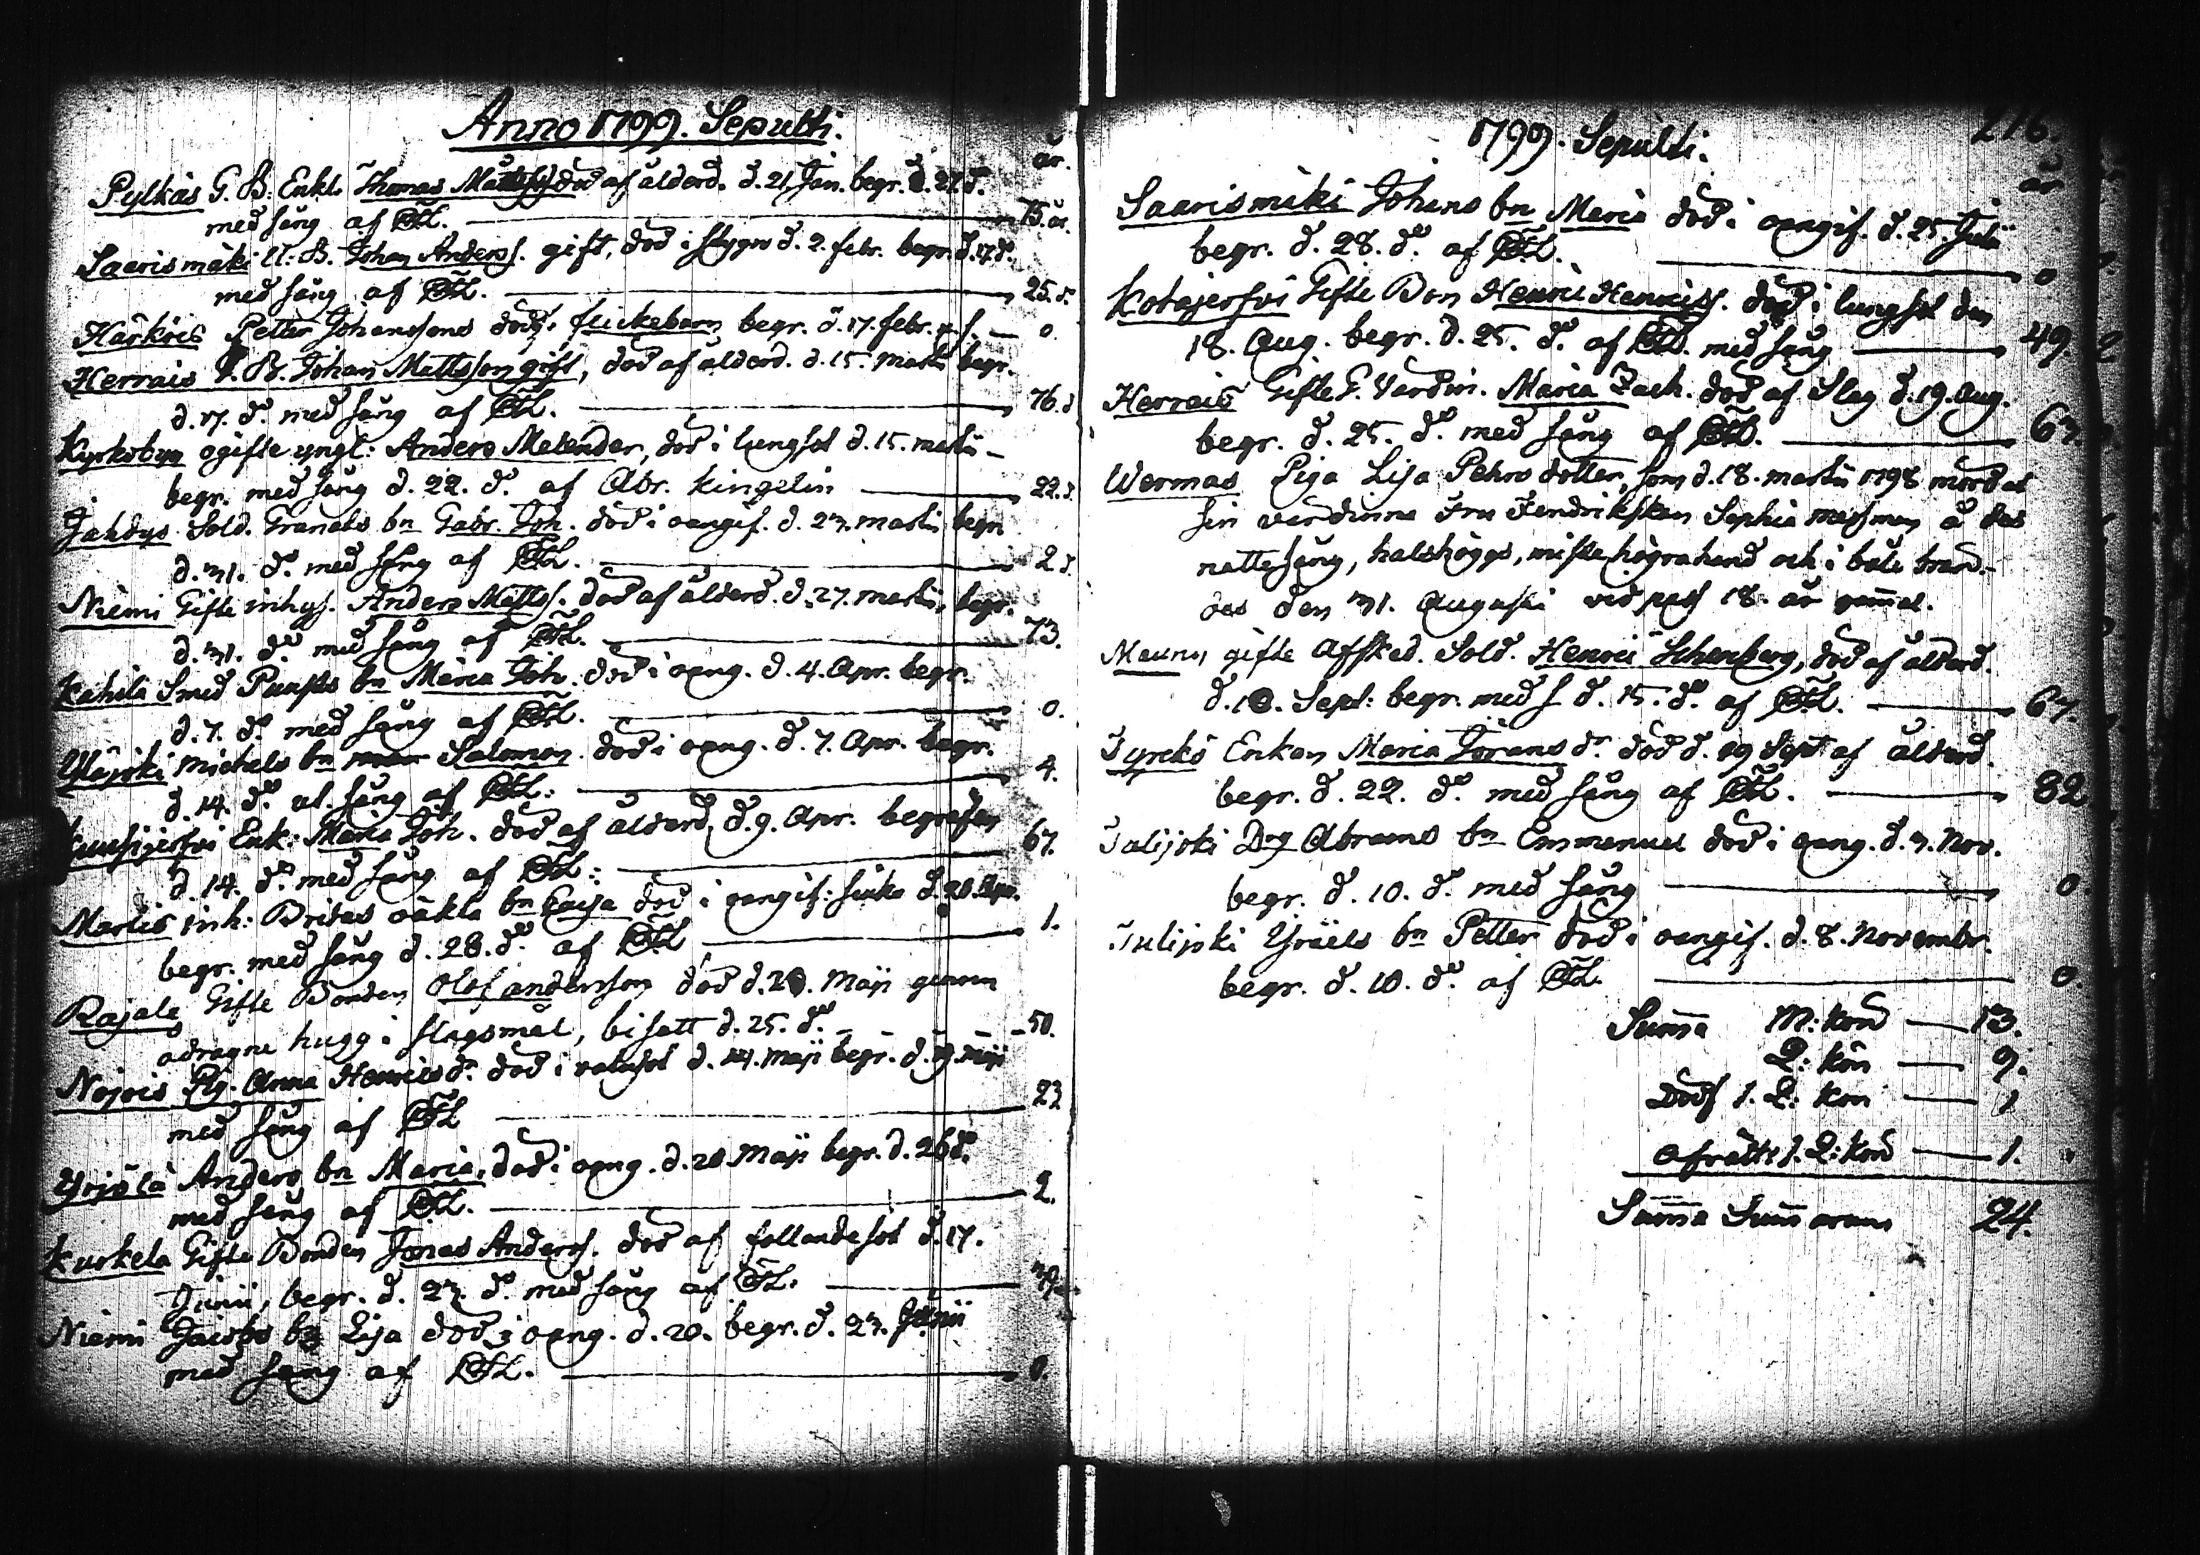 Anno 1799. Sepulti.
år.
Pylkäs G. B. Enkl. Thomas Mattss. död af ålderd. d. 21 Jan. begr. d. 27 d:o
med sång af 75. år.
Saarismäki U. B. Johan Anderss. gift, död i styng d. 2. febr. begr. d. 17. d:o
med sång af 25.
Härkois Petter Johanssons dödf. flickebarn begr. d. 17. febr. 0.
Herrais G. B. Johan Mattsson gift, död af ålderd. d. 15. Martii begr.
d. 17. d:o med sång af 76.
Kyrkobyn ogifte yngl: Anders Melender, död i lungsot d. 15. martii
begr. med sång d. 22. d:o af Abr. Kingelin 22.
Jahdys Sold. Granats bn Gabr. Joh. död i oangif. d. 23. martii begr.
d. 31. d:o med sång af 2.
Niemi Gifte inhys. Anders Mattss. död af ålderd. d. 27. martii, begr.
d. 31. d:o med sång af 73.
Kahila Smed bn Maria Joh. död i oang. d. 4. Apr. begr.
d. 7. d:o med sång af 0.
Yläjoki Michels bn Salomon död i oang. d. 7. Apr. begr.
d. 14. d:o ut. sång af 4.
Enk: Maria Joh. död af ålderd. d. 9. Apr. begrafven
d. 14. d:o med sång af 67.
Martis inh: Britas oäkta bn Caisa död i oangif: siuka d. 20. Apr.
begr. med sång d. 28. d:o af 1.
Rajala Gifte Bonden Olof andersson död d. 20. Maji genom
ådragne hugg i slagsmål, bisatt d. 25. d:o 50.
Nojois Pig. Anna Henricsdr. död i d. 14. Maji begr. d. 19. Maji
med sång af 23
Yrjölä Anders bn Maria, död i oang. d. 20 Maji begr. d. 26 d:o
med sång af 2.
Kurkela Gifte Bonden Jonas Anderss. död af fallandesot d. 17.
Junii, begr. d. 23. d:o med sång af 39.
Niemi Jacobs bn Lisa död i oang. d. 20. begr. d. 23. Junii
med sång af 0.
1799. Sepulti.
216.
år
Saarismäki Johans bn Maria död i oangif. d. 25 Julii
begr. d. 28. d:o af 0
Kotajerfvi Gifte Bon Henric Henricss. död i lungsot den
18. Aug. begr. d. 25. d:o af med sång 49.
Herrais Gifte G. Värdin. Maria Zach. död af Slag d. 19. Aug.
begr. d. 25. d:o med sång af 63.
Wermas Piga Lisa Pehrs dotter, som d. 18. martii 1798 mördat
sin värdinna Fru Fendrikskan Sophia å des
nattesäng, halshöggs, miste högra hand och i båle brän-
des den 31. Augusti vid pass 18. år gammal.
Meuny gifte Afsked. Sold. Henric Schenberg, död af ålderd.
d. 10. Sept: begr. med s d. 15. d:o af 67.
Tyrckö Enkan Maria Görans dr. död d. 19 Sept af ålderd.
begr. d. 22. d:o med sång af 82
Talijoki Drg Abrams bn Emmanuel död i oang. d. 3. Nov.
begr. d. 10. d:o med sång 0.
Talijoki Yrjäels bn Petter död i oangif. d. 8. Novembr.
begr. d. 10. d:o af 0.
Summa M: kön 13.
Q: kön 9.
Dödf 1. Q: kön 1
Afrätt: 1. Q: kön 1.
Summa Summarum 24.